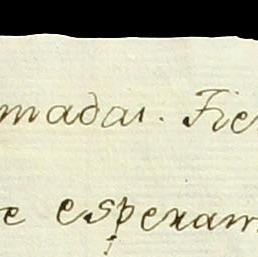 madas. Fie
e esperam